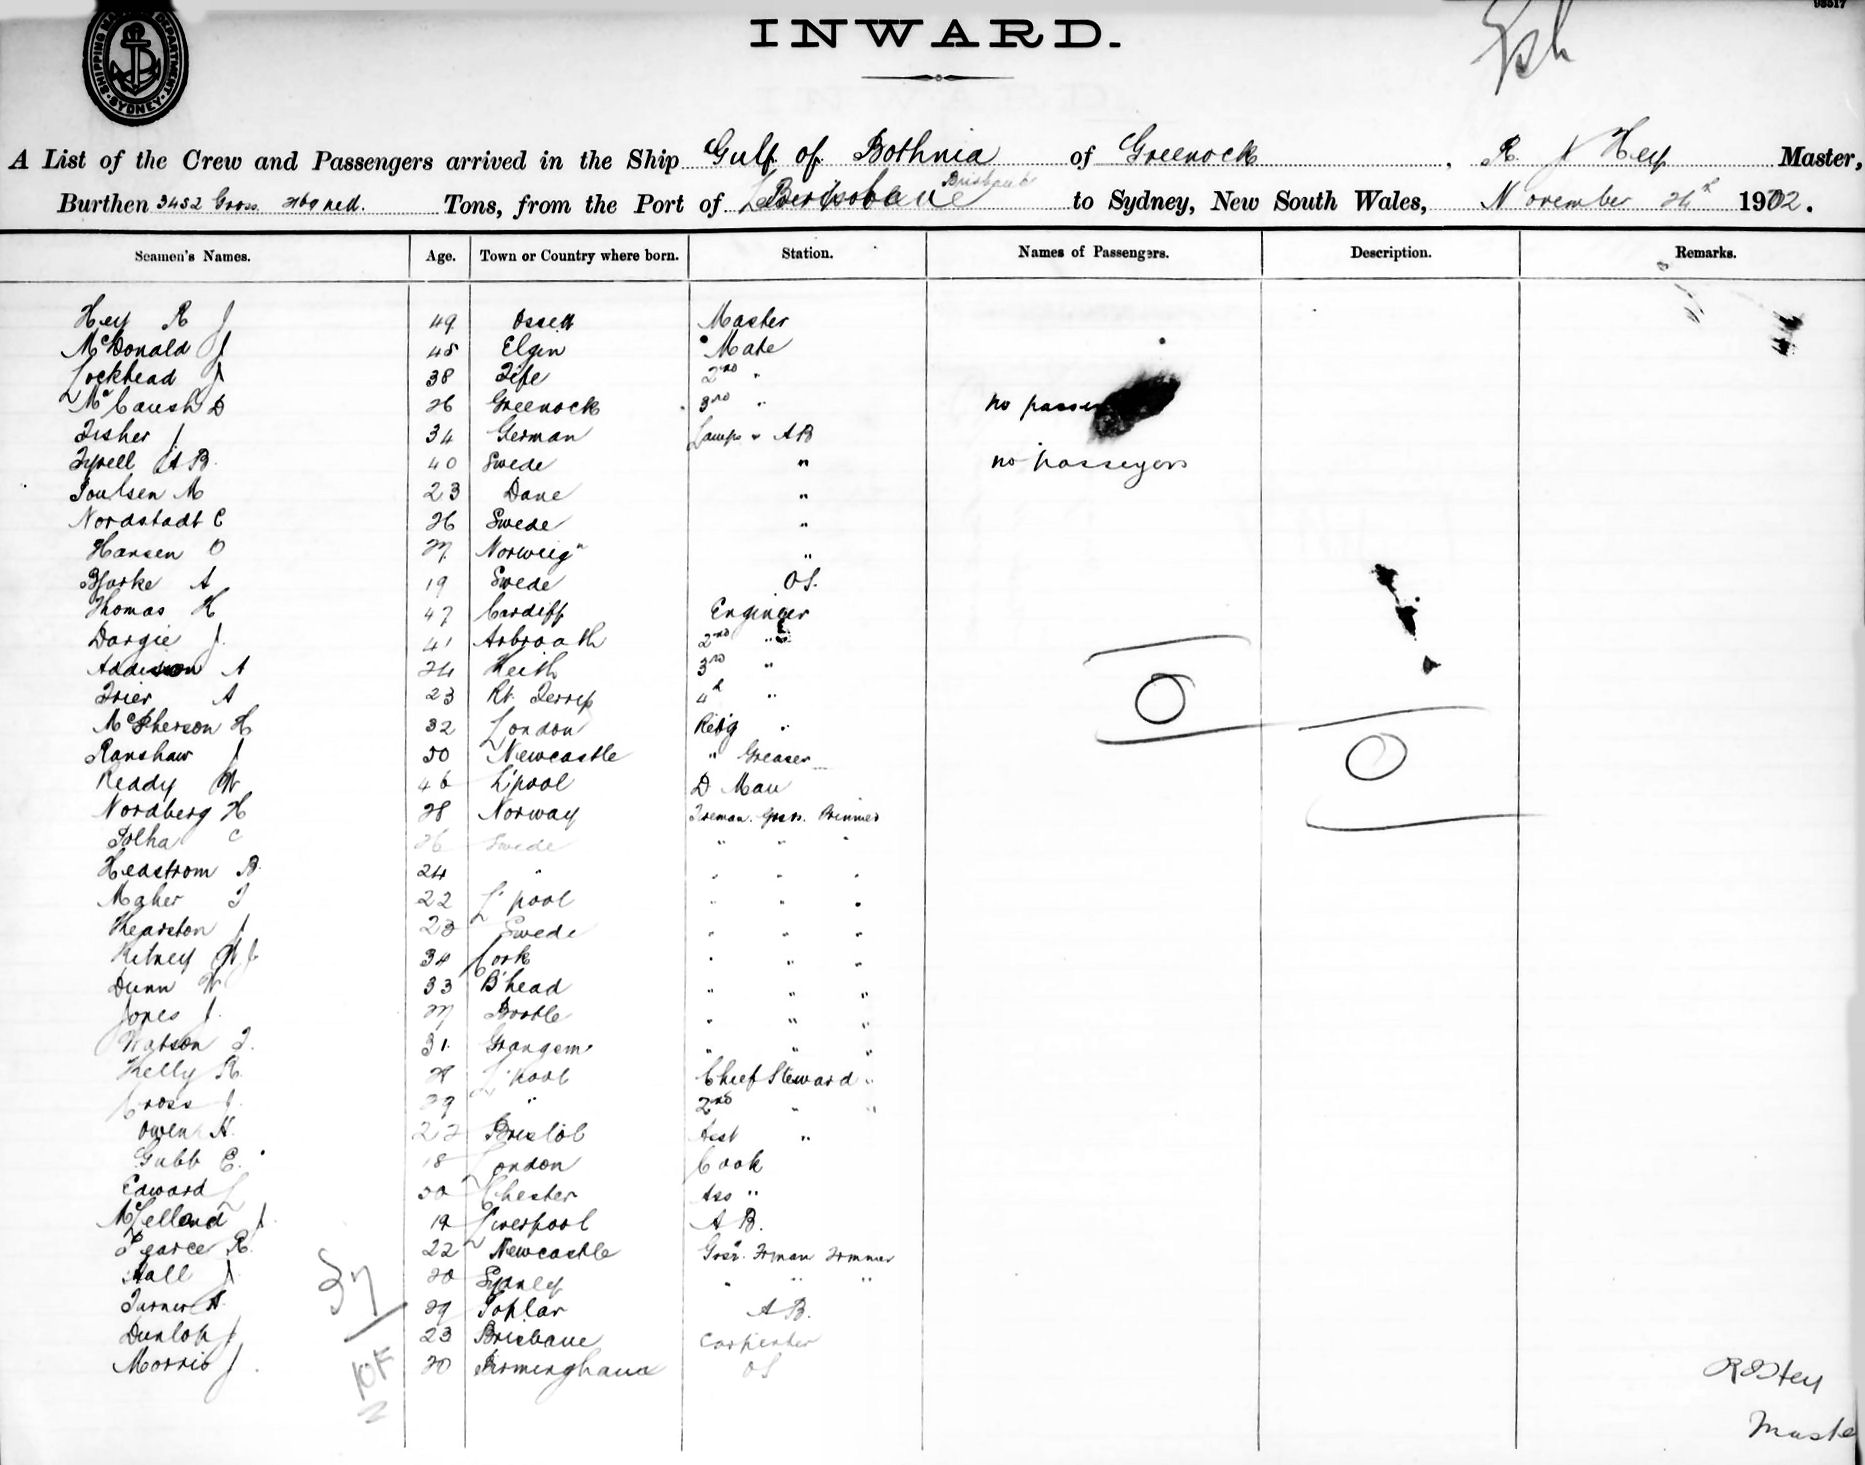 INWARD.
SHIPPING MASTER'S DEPARTMENT SYDNEY
A List of the Crew and Passengers arrived in the Ship Gulf of Bothnia of Greenock, R J Hey Master,
Burthen 3452 Gross Tons, from the Port of Brisbane to Sydney, New South Wales, November 24th 1902.
Seamen's Names. Age. Town or Country where born. Station. Names of Passengers. Description. Remarks.
Hey R J 49 Ossett Master
McDonald J 45 Elgin Mate
Lockhead J 38 Fife 2nd "
McCaush D 26 Greenock 3rd " no passen
Fisher J 34 German Lamps & AB
Tyrell A B. 40 Swede " no passengers
Poulsen M 23 Dane "
Nordstadt C 26 Swede "
Hansen O 27 Norweig" "
Bjorke A 19 Swede OS.
Thomas H 47 Cardiff Engineer
Dargie J. 41 Arbroath 2nd "
Addison A 24 Keith 3rd "
Frier A 23 4th "
McPherson H 32 London Refig "
Ranshaw J 50 Newcastle " Greaser
Reddy W 46 L'pool D Man
Nordberg H 28 Norway Fireman. Greas. Trimmer
Polha C 26 Swede " " "
Hedstrom B. 24 " " " "
Maher T 22 L'pool " " "
Hearston J 23 Swede " " "
Kitney W J 34 Cork " " "
Dunn W 33 B'head " " "
Jones J. 27 Bootle " " "
Watson T. 31 Grangem " " "
Kelly R. 28 L'pool Chief Steward "
Cross J. 29 " 2nd " "
Owen H. Bristol Asst "
Gubb E. 18 London Cook
Edward L 30 Chester Ass "
McLelland J 19 Liverpool A B.
Pearce R. 22 Newcastle Gresr. Frman Trmmer
Hall J. 20 Sydney " " "
Turner A. 29 Poplar A B.
Dunlop J 23 Brisbane Carpenter
Morris J. 20 Birmingham OS
37
R J Hey
Maste